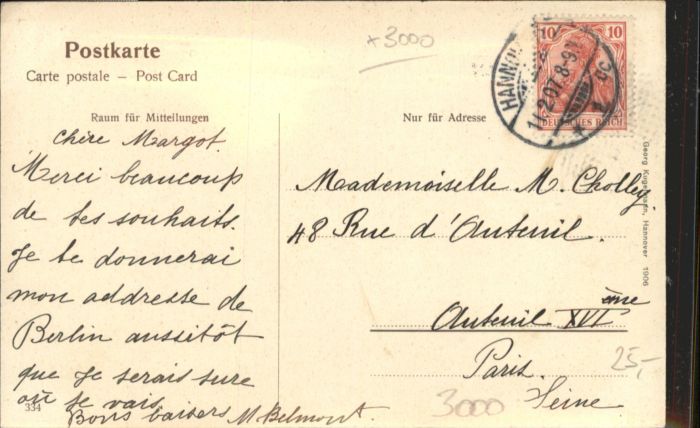 Postkarte
Carte postale – Post Card
Raum für Mitteilungen
Chère Margot
Merci beaucoup
de tes souhaits.
Je te donnerai
mon addresse de
Berlin aussitôt
que je serais sure
où je vais.
Bons baisers M. Belmont.
334
x 3000
Nur für Adresse
10 10
DEUTSCHES REICH
HANNOV
11.2.07. 8-9N
Mademoiselle M. Cholley.
48 Rue d'Auteuil.
Auteuil XVI ème
Paris.
Seine
25,-
3000
Hannover 1906